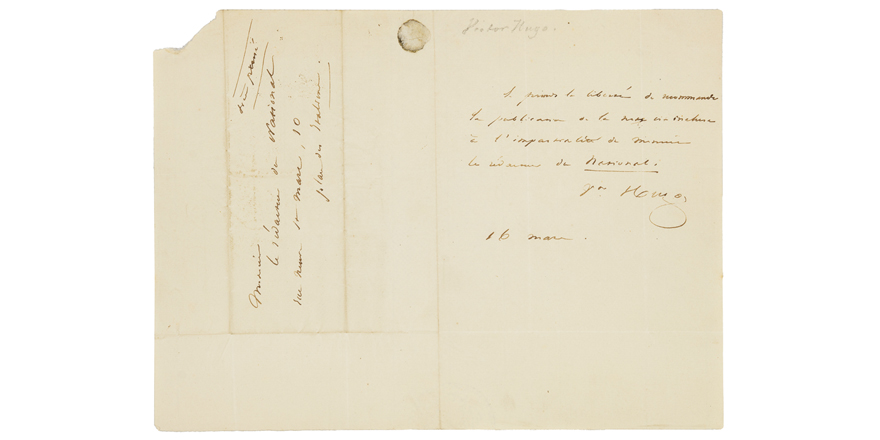 Monsieur
le rédacteur du National
rue neuve St marc, 10
place des Italiens.
Victor Hugo.
Je prends la liberté de recommander
la publication de la note ci-incluse
à l'impartialité de monsieur
le rédacteur du National.
Vor Hugo
16 mars.